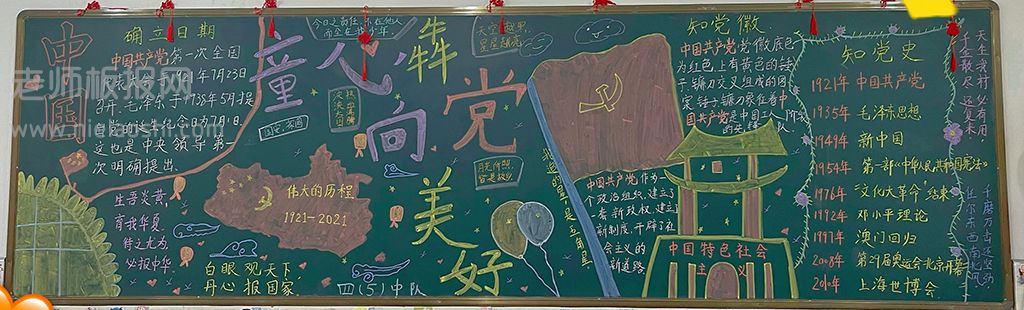 中国
确立日期
中国共产党第一次全国
1921年7月23日
召开,毛泽东于1938年5月提
出党的诞生纪念日为7月1日
这也是中央领导第一
次明确提出
童心向党
犇
美好
今日之责任,不在他人
而全在我少年
国安,家圆
伟大的历程
1921-2021
生吾炎黄,
育我华夏,
待之尤为,
必报中华
白眼观天下,
丹心报国家
四(5)中队
月光所照
皆是故乡
知党徽
中国共产党党徽底色
为红色,上有黄色的锤
子镰刀交叉组成的图
案,锤子镰刀象征着中
国共产党是中国工人
中国共产党作为一
个政治组织,建立了
着新政权,建立了
新制度,开辟了社
会主义的
新道路
中国特色社会
主义
知党史
1921年 中国共产党
1935年 毛泽东思想
1949年 新中国
1954年 第一部《中华人民共和国宪法》
1976年 “文化大革命”结束
1992年 邓小平理论
1997年 澳门回归
2008年 第29届奥运会北京开幕
2010年 上海世博会
天生我材必有用,
千金散尽还复来,
千磨万击还坚劲
任尔东西南北风
老师板报网